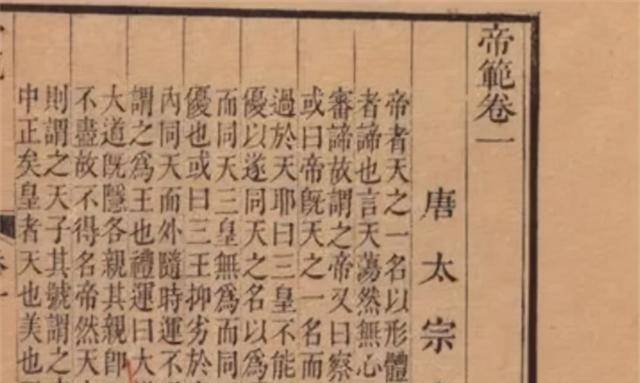 帝範卷一
唐太宗
帝者天之一名以形體
者諦也言天蕩然無心
審諦故謂之帝又曰察
或曰帝旣天之一名而
過於天耶曰三皇不能
優以遂同天之名以爲
而同天三皇無爲而同
優也或曰三王抑劣於
內同天而外隨時運不
謂之爲王也禮運曰大
大道旣隱各親其親卽
不盡故不得名帝然天
則謂之天子其號謂之
中正矣皇者天也美也